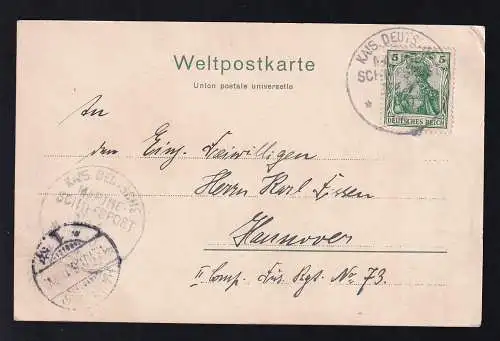 KAIS. DEUTSCHE
SCHIFFSPOST
Weltpostkarte
Union postale universelle
5 5
DEUTSCHES REICH
An
den Einj. Freiwilligen
Herrn Karl
Hannover
II Comp. Füs. Rgt. No 73.
KAIS. DEUTSCHE
MARINE-
SCHIFFSPOST